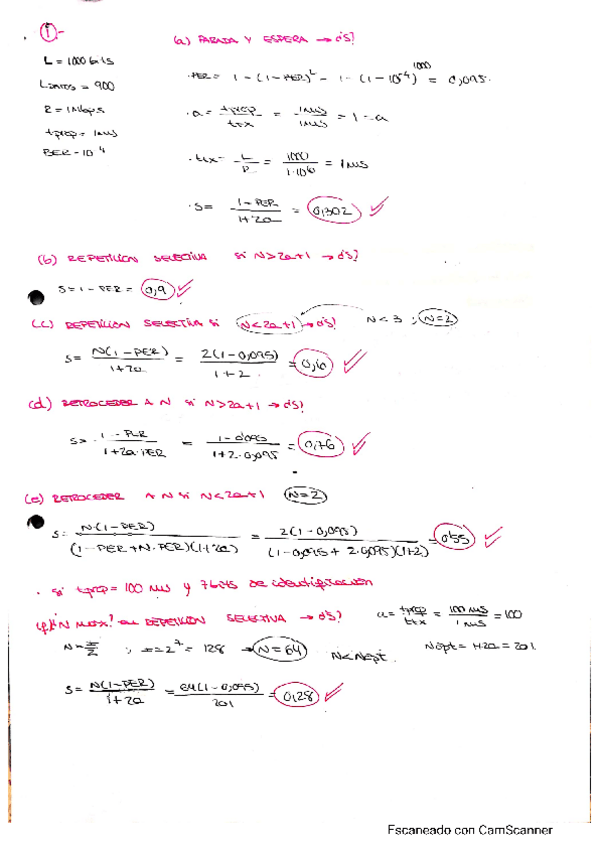 ①.-
(a) PARADA Y ESPERA → ¿S?
L = 1000 bits
Ldatos = 900
R = 1Mbps
tprop = 1ms
BER = 10^-4
· PER = 1 - (1-BER)^L = 1 - (1-10^-4)^1000 = 0,095.
· a = tprop/ttx = 1ms/1ms = 1 = a
· ttx = L/R = 1000/1·10^6 = 1ms
· S = 1-PER/1+2a = 0,302 ✓
(b) REPETICION SELECTIVA si N>2a+1 → ¿S?
S = 1 - PER = 0,9 ✓
(c) REPETICION SELECTIVA si N<2a+1 → ¿S? N<3 ; N=2
S = N(1-PER)/1+2a = 2(1-0,095)/1+2 = 0,6 ✓
(d) RETROCEDER A N si N>2a+1 → ¿S?
S = 1-PER/1+2a·PER = 1-0'095/1+2·0,095 = 0,76 ✓
(e) RETROCEDER A N si N<2a+1 N=2
S = N·(1-PER)/(1-PER+N·PER)(1+2a) = 2(1-0,095)/(1-0,095+2·0,095)(1+2) = 0'55 ✓
· si tprop = 100 ms y 7 bits de identificación
¿N max? en REPETICION SELECTIVA → ¿S? a = tprop/ttx = 100 ms/1 ms = 100
N = x/2 ; x = 2^7 = 128 → N=64 N<Nopt. Nopt = 1+2a = 201
S = N(1-PER)/1+2a = 64(1-0,095)/201 = 0,28 ✓
Escaneado con CamScanner